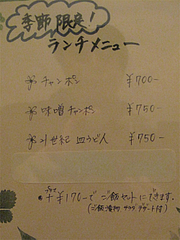 季節限定!
ランチメニュー
チャンポン ¥700-
味噌チャンポン ¥750-
21世紀 皿うどん ¥750-
+¥170-で ご飯セットにできます。
(ご飯,漬物,サラダ,デザート付)